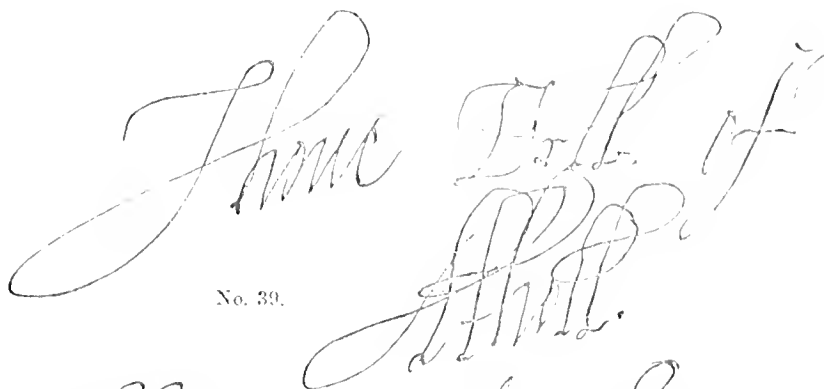 Jhone Erll of
Athall.
No. 39.